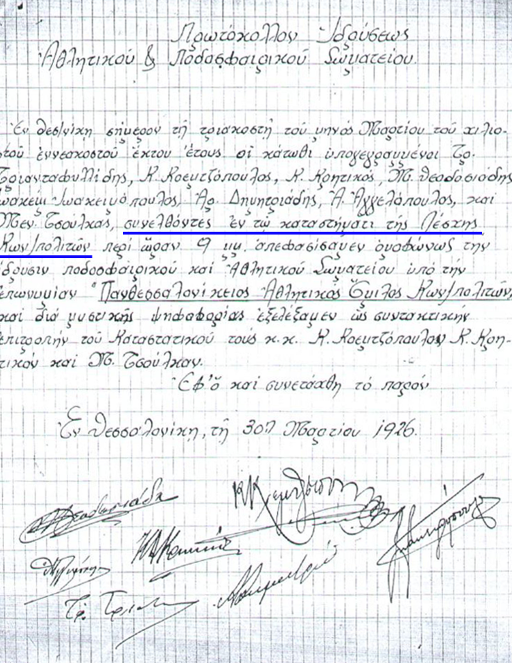 Πρωτόκολλον Ιδρύσεως
Αθλητικού & Ποδοσφαιρικού Σωματείου.
Εν Θεσ/νίκη σήμερον τη τριακοστή του μηνός Μαρτίου του χιλιο-
στού εννεακοστού έκτου έτους οι κάτωθι υπογεγραμμένοι Τρ.
Τριανταφυλλίδης, Κ. Κοεμτζόπουλος, Κ. Κρητικός, Μ. Θεοδοσιάδης
Ιωακείμ Ιωακειμόπουλος, Αρ. Δημητριάδης, Α. Αγγελόπουλος, και
Μεν. Τσούλκας, συνελθόντες εν τω καταστήματι της Λέσχης
Κων/πολιτών περί ώραν 9 μμ. απεφασίσαμεν ομοφώνως την
ίδρυσιν ποδοσφαιρικού και Αθλητικού Σωματείου υπό την
επωνυμίαν "Πανθεσσαλονίκειος Αθλητικός Όμιλος Κων/πολιτών,
και διά μυστικής ψηφοφορίας εξελέξαμεν ως συντακτικήν
επιτροπήν του Καταστατικού τους κ.κ. Κ. Κοεμτζόπουλον Κ. Κρη-
τικόν και Μ. Τσούλκαν.
Εφ' ό και συνετάχθη το παρόν
Εν Θεσσαλονίκη, τη 30η Μαρτίου 1926.
Θεοδοσιάδη